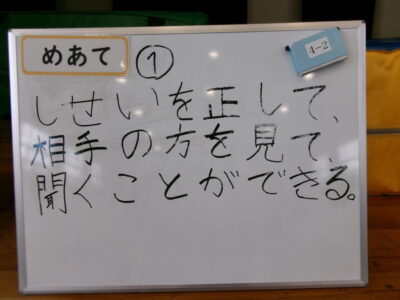 めあて ①
4-2
しせいを正して、
相手の方を見て、
聞くことができる。